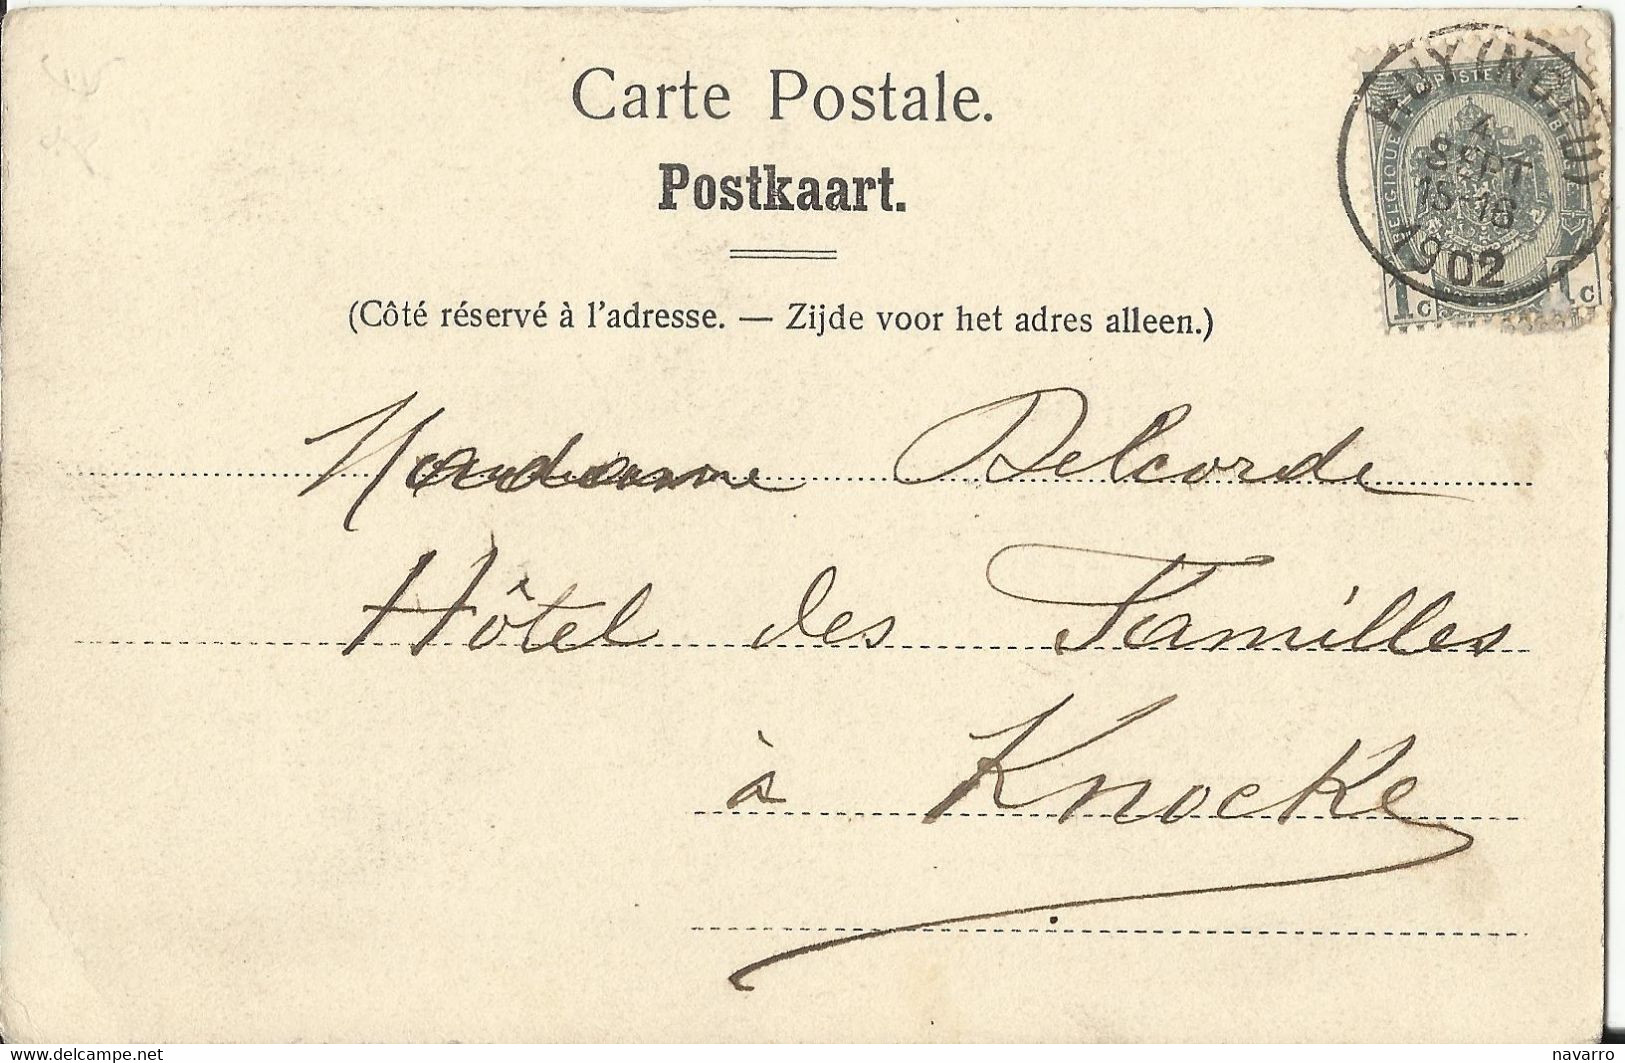 Carte Postale.
Postkaart.
(Côté réservé à l'adresse. — Zijde voor het adres alleen.)
HUY (NORD)
4
SEPT
15-16
1902
POSTE
BELGIQUE
1c
1c
Madame Delcorde
Hôtel des Familles
à Knocke
www.delcampe.net
navarro